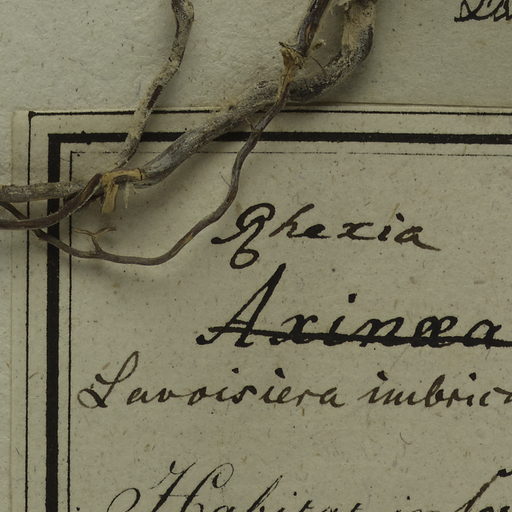 Rhexia
Axinæa
Lavoisiera imbric
Habitat in